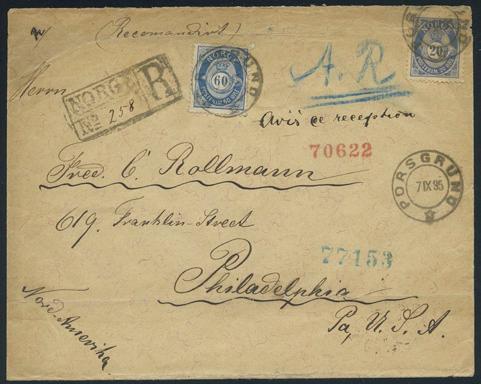 (Recomandirt)
NORGE R
No 258
60
20
A. R
Herrn
Avis de reception
70622
Fred. C. Rollmann
PORSGRUND
7 IX 95
619. Franklin-Street
77153
Philadelphia
Pa, U. S. A.
Nord-Amerika